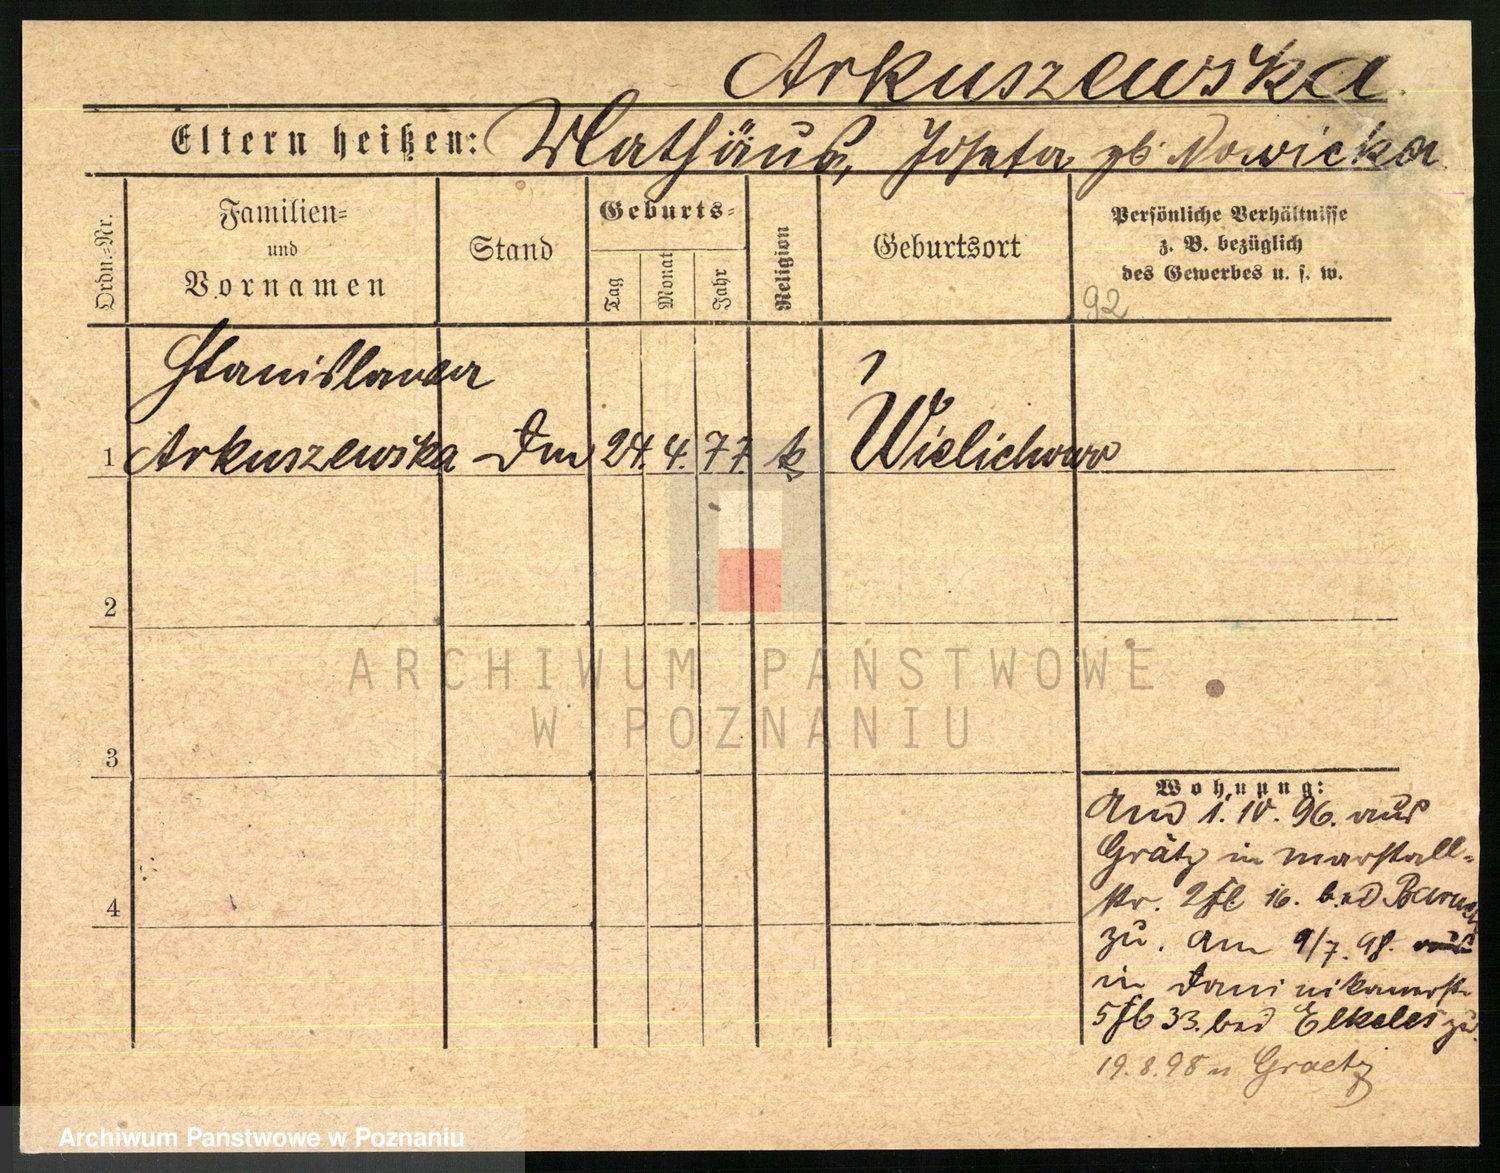 Arkuszewska
Eltern heißen: Mathäus, Josefa gb Nowicka
Ordn.-Nr.
Familien-
und
Vornamen
Stand
Geburts-
Tag
Monat
Jahr
Religion
Geburtsort
Persönliche Verhältnisse
z. B. bezüglich
des Gewerbes u. s. w.
92
Stanislawa
1 Arkuszewska Dm 24. 4. 77. k Wielichowo
2
ARCHIWUM PAŃSTWOWE
W POZNANIU
3
Wohnung:
1. 10. 96. aus
Grätz in Marstall-
str. 16. bei
zu. Am 9/7. 98.
in Dominikanerstr
5 33. bei Elkeles zu.
19.8.98 n Graetz
4
Archiwum Państwowe w Poznaniu